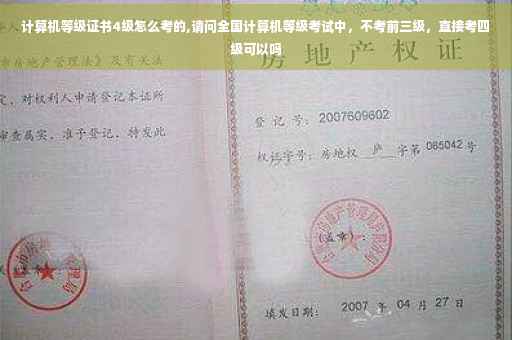 计算机等级证书4级怎么考的,请问全国计算机等级考试中，不考前三级，直接考四
级可以吗
房地产权证
市房地产管理法》及有关法
定，对权利人申请登记本证所
审查属实，准予登记，特发此
登 记 号：2007609602
权证字号：房地权 庐 字第 085042 号
(盖章)：
填发日期： 2007 年 04 月 27 日